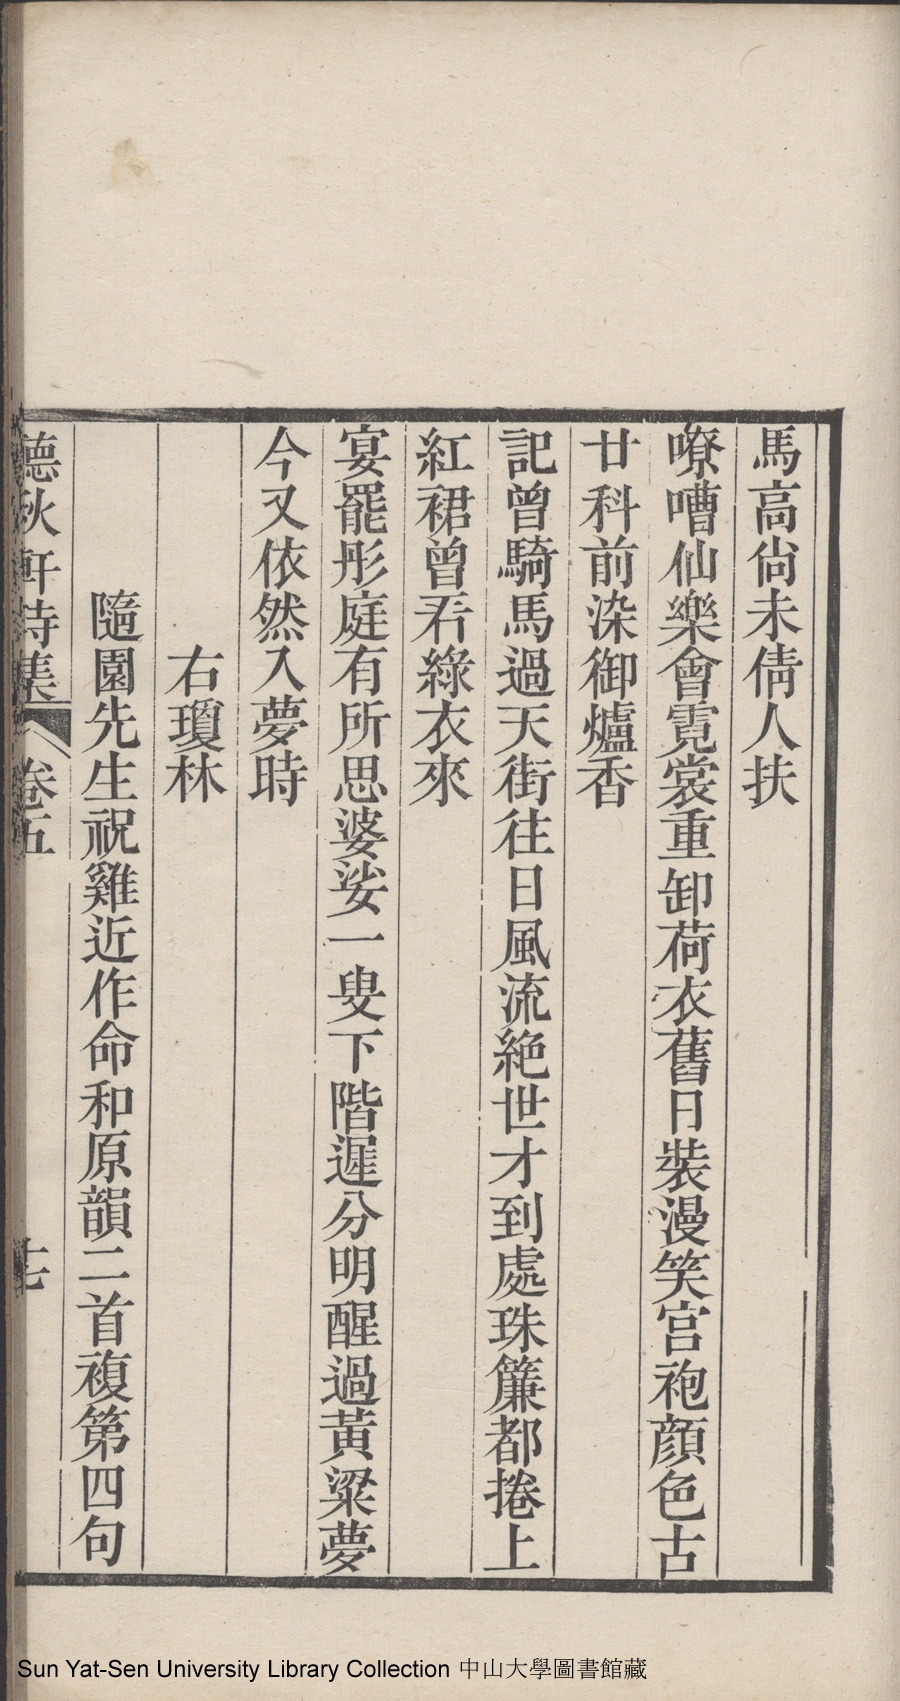 馬高尙未倩人扶
嘹嘈仙樂會霓裳重卸荷衣舊日裝漫笑宮袍顏色古
廿科前染御爐香
記曾騎馬過天街往日風流絶世才到處珠簾都捲上
紅裙曾看綠衣來
宴罷彤庭有所思婆娑一叟下階遲分明醒過黃粱夢
今又依然入夢時
右瓊林
隨園先生祝雞近作命和原韻二首複第四句
聽秋軒詩集 卷五 十七
Sun Yat-Sen University Library Collection 中山大學圖書館藏